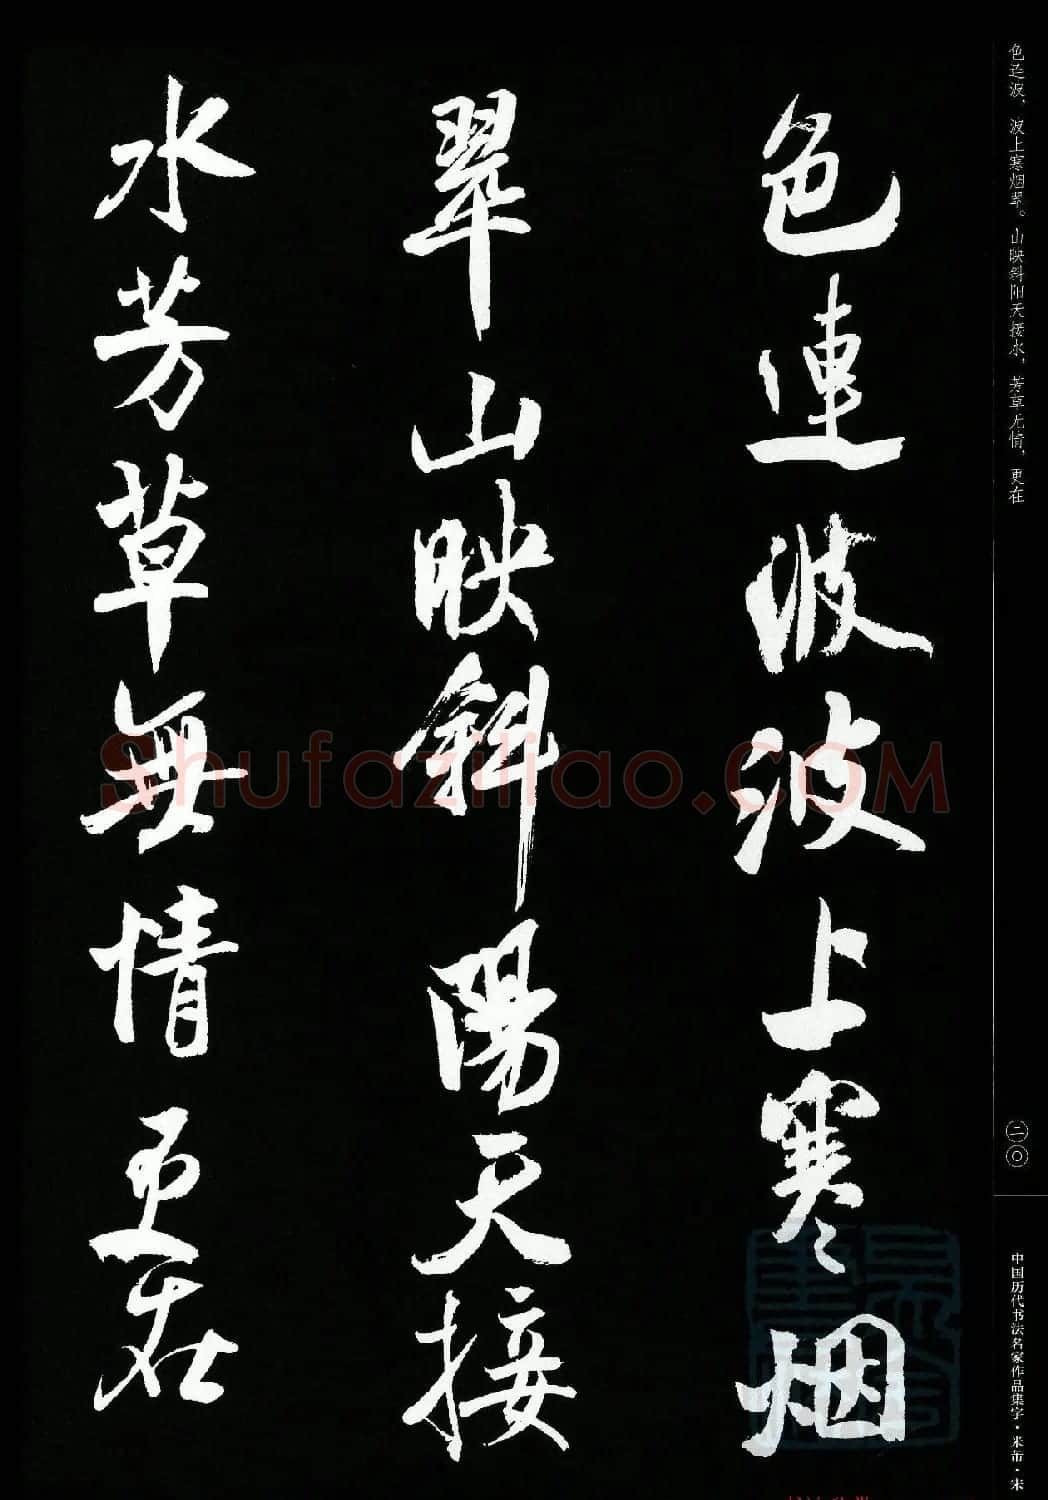 色连波，波上寒烟翠。山映斜阳天接水，芳草无情，更在
色連波波上寒烟
翠山映斜陽天接
水芳草無情更在
二〇
中国历代书法名家作品集字·米芾·宋
Shufaziliao.com